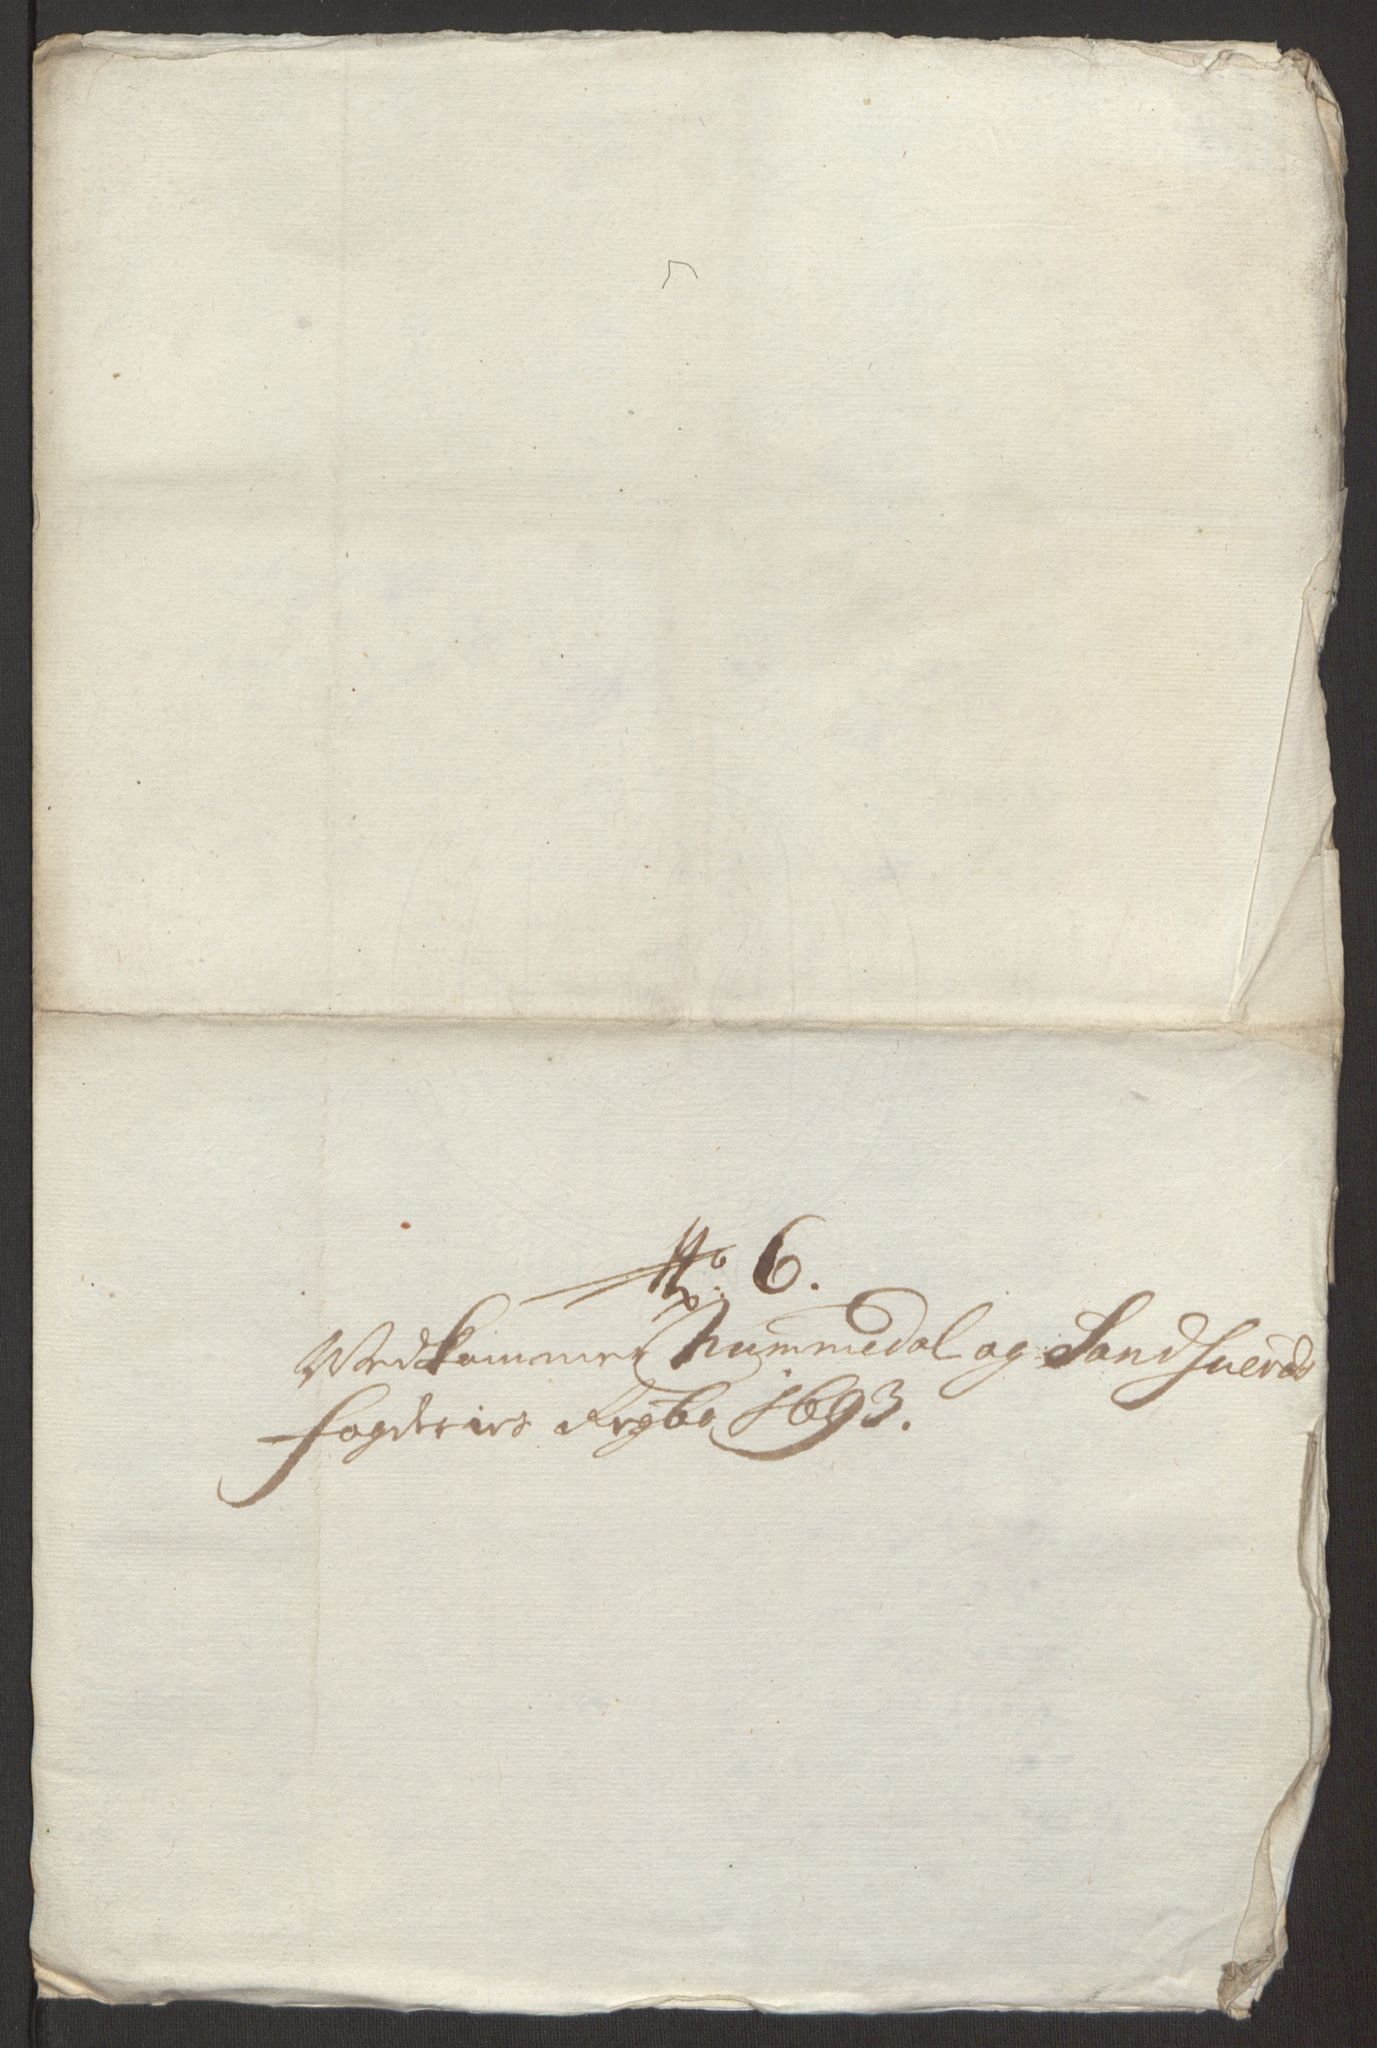 No. 6.
Vedkommer Nummedal og Sandsuerds
fogderies Regbr 1693.